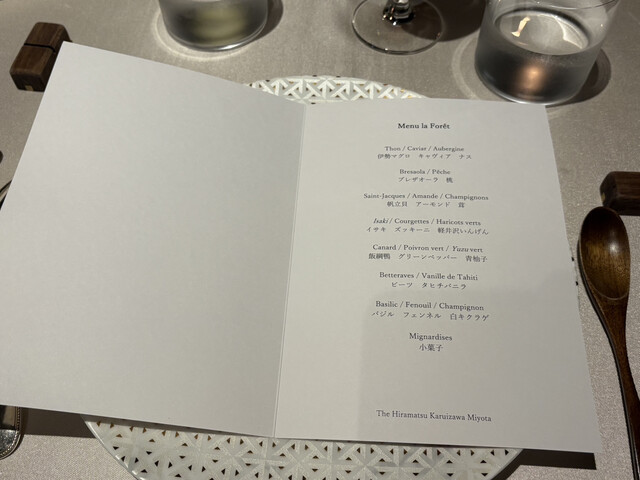 Menu la Forêt
Thon / Caviar / Aubergine
伊勢マグロ キャヴィア ナス
Bresaola / Pêche
ブレザオーラ 桃
Saint-Jacques / Amande / Champignons
帆立貝 アーモンド 茸
Isaki / Courgettes / Haricots verts
イサキ ズッキーニ 軽井沢いんげん
Canard / Poivron vert / Yuzu vert
飯綱鴨 グリーンペッパー 青柚子
Betteraves / Vanille de Tahiti
ビーツ タヒチバニラ
Basilic / Fenouil / Champignon
バジル フェンネル 白キクラゲ
Mignardises
小菓子
The Hiramatsu Karuizawa Miyota